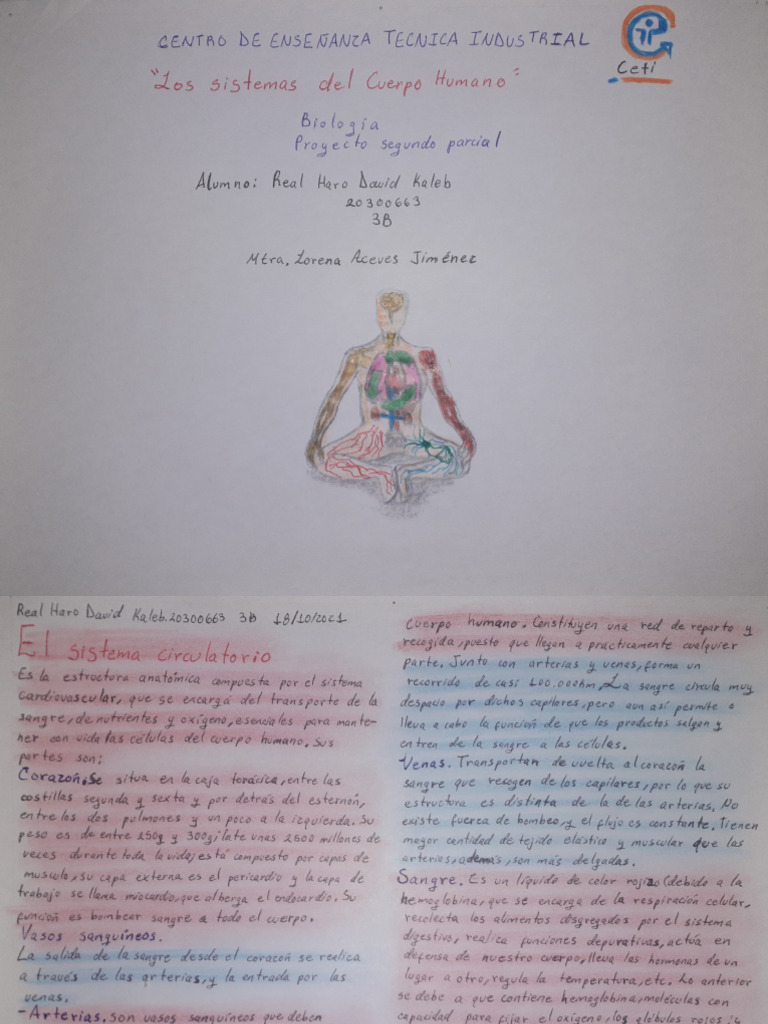 CENTRO DE ENSEÑANZA TECNICA INDUSTRIAL
Ceti
"Los sistemas del Cuerpo Humano"
Biología
Proyecto segundo parcial
Alumno: Real Haro David Kaleb
20300663
3B
Mtra. Lorena Aceves Jiménez
Real Haro David Kaleb. 20300663 3B 18/10/2021
El sistema circulatorio
Es la estructura anatómica compuesta por el sistema
cardiovascular, que se encarga del transporte de la
sangre, de nutrientes y oxígeno, esenciales para mante-
ner con vida las células del cuerpo humano. Sus
partes son:
Corazón. Se situa en la caja torácica, entre las
costillas segunda y sexta y por detrás del esternón,
entre los dos pulmones y un poco a la izquierda. Su
peso es de entre 250g y 300g; late unas 2600 millones de
veces durante toda la vida; está compuesto por capas de
musculo, su capa externa es el pericardio y la capa de
trabajo se llama miocardio, que alberga el endocardio. Su
función es bombear sangre a todo el cuerpo.
Vasos sanguíneos.
La salida de la sangre desde el corazón se realiza
a través de las arterias, y la entrada por las
venas.
-Arterias. son vasos sanguíneos que deben
cuerpo humano. Constituyen una red de reparto y
recogida, puesto que llegan a practicamente cualquier
parte. Junto con arterias y venas, forma un
recorrido de casi 100.000km. La sangre circula muy
despacio por dichos capilares, pero aun así permite o
lleva a cabo la función de que los productos salgan y
entren de la sangre a las células.
Venas. Transportan de vuelta al corazón la
sangre que recogen de los capilares, por lo que su
estructura es distinta de la de las arterias. No
existe fuerza de bombeo, y el flujo es constante. Tienen
mayor cantidad de tejido elástico y muscular que las
arterias, además, son más delgadas.
Sangre. Es un líquido de color rojizo (debido a la
hemoglobina, que se encarga de la respiración celular,
recolecta los alimentos disgregados por el sistema
digestivo, realiza funciones depurativas, actúa en
defensa de nuestro cuerpo, lleva las hormonas de un
lugar a otro, regula la temperatura, etc. Lo anterior
se debe a que contiene hemoglobina, moléculas con
capacidad para fijar el oxígeno, los glóbulos rojos